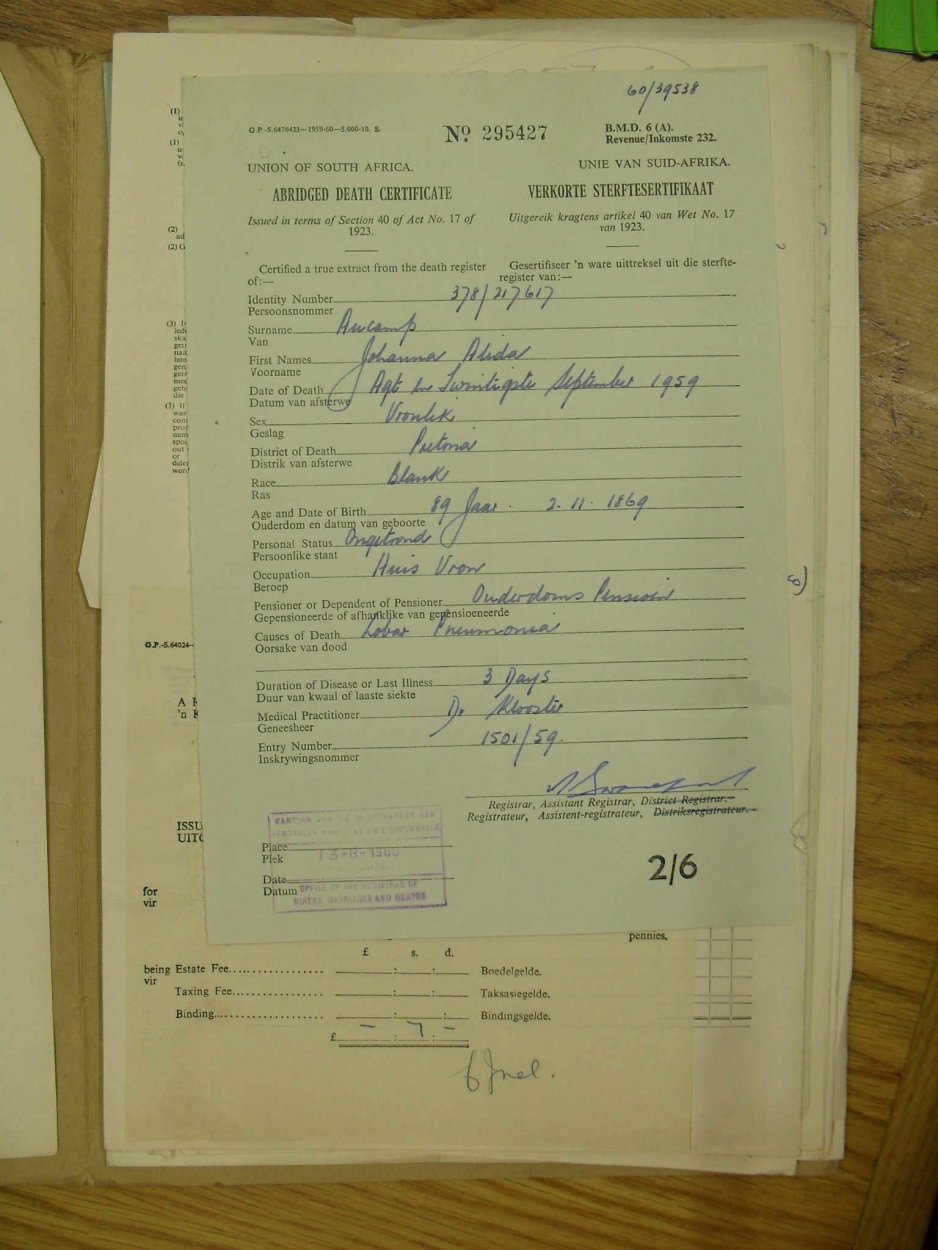 60/39538
G.P.-S.6476423—1959-60—5,000-10. S.
No 295427
B.M.D. 6 (A).
Revenue/Inkomste 232.
UNION OF SOUTH AFRICA.
UNIE VAN SUID-AFRIKA.
ABRIDGED DEATH CERTIFICATE
VERKORTE STERFTESERTIFIKAAT
Issued in terms of Section 40 of Act No. 17 of
1923.
Uitgereik kragtens artikel 40 van Wet No. 17
van 1923.
Certified a true extract from the death register
of:—
Gesertifiseer 'n ware uittreksel uit die sterfte-
register van:—
Identity Number 378/217617
Persoonsnommer
Surname Aucamp
Van
First Names Johanna Alida
Voorname
Date of Death Agt en Twintigste September 1959
Datum van afsterwe
Sex Vroulik
Geslag
District of Death Pretoria
Distrik van afsterwe
Race Blank
Ras
Age and Date of Birth 89 Jaar. 2. 11. 1869
Ouderdom en datum van geboorte
Personal Status Ongetroud
Persoonlike staat
Occupation Huis Vrou
Beroep
Pensioner or Dependent of Pensioner Ouderdoms Pensioen
Gepensioneerde of afhanklike van gepensioeneerde
Causes of Death Lobar Pneumonia
Oorsake van dood
Duration of Disease or Last Illness 3 Days
Duur van kwaal of laaste siekte
Medical Practitioner Dr Klooster
Geneesheer
Entry Number 1501/59.
Inskrywingsnommer
Registrar, Assistant Registrar, District Registrar.
Registrateur, Assistent-registrateur, Distriksregistrateur.
Place
Plek
Date
Datum
13-8-1960
OFFICE OF THE REGISTRAR OF
BIRTHS, MARRIAGES AND DEATHS
2/6
G.P.-S.64024
ISSU
UITG
for
vir
pennies.
£ s. d.
being Estate Fee Boedelgelde.
vir
Taxing Fee Taksasiegelde.
Binding Bindingsgelde.
£ – 7 –